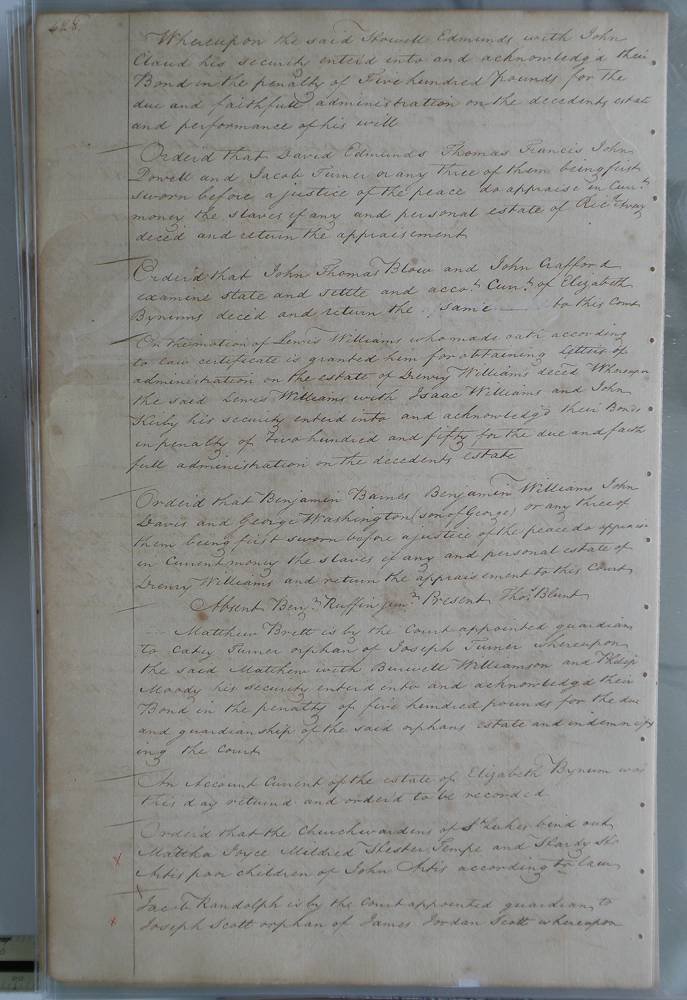 428
Whereupon the said Howell Edmunds with John
Claud his security enterd into and acknowledg'd their
Bond in the penalty of Five hundred pounds for the
due and faithfull administration on the decedents estate
and performance of his will
Orderd that David Edmunds Thomas Francis John
Powell and Jacob Turner or any three of them being first
sworn before a justice of the peace do appraise in Curt.
money the slaves if any and personal estate of
dece'd and return the appraisement
Orderd that John Thomas Blow and John Crafford
examine state and settle and accot. Curt. of Elizabeth
Bynums dece'd and return the same to this Court
On the motion of Lewis Williams who made oath according
to law certificate is granted him for obtaining letters of
administration on the estate of Drewry Williams deced Whereupon
the said Lewis Williams with Isaac Williams and John
Kirby his security enterd into and acknowledg'd their Bond
in penalty of Two hundred and fifty for the due and faith
full administration on the decedents estate
Orderd that Benjamin Barnes Benjamin Williams John
Davis and George Washington (son of George) or any three of
them being first sworn before a justice of the peace do appraise
in Current money the slaves if any and personal estate of
Drewry Williams and return the appraisement to this Court
Absent Benj. Ruffin junr. Present Thos. Blunt
Matthew Brett is by the Court appointed guardian
to Catey Turner orphan of Joseph Turner whereupon
the said Matthew with Burwell Williamson and Philip
Moody his security enterd into and acknowledgd their
Bond in the penalty of five hundred pounds for the due
and guardianship of the said orphans estate and indemnify
ing the Court
An Account Current of the estate of Elizabeth Bynum was
this day returnd and orderd to be recorded
Orderd that the Churchwardens of St. Lukes bind out
Matthа Joyce Mildred Hester Tempe and Hardy
Artis poor children of John Artis according to law
Jacob Randolph is by the Court appointed guardian to
Joseph Scott orphan of James Jordan Scott whereupon